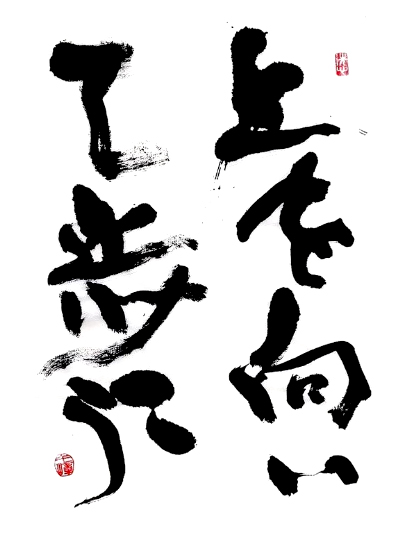 上を向い
て歩こう